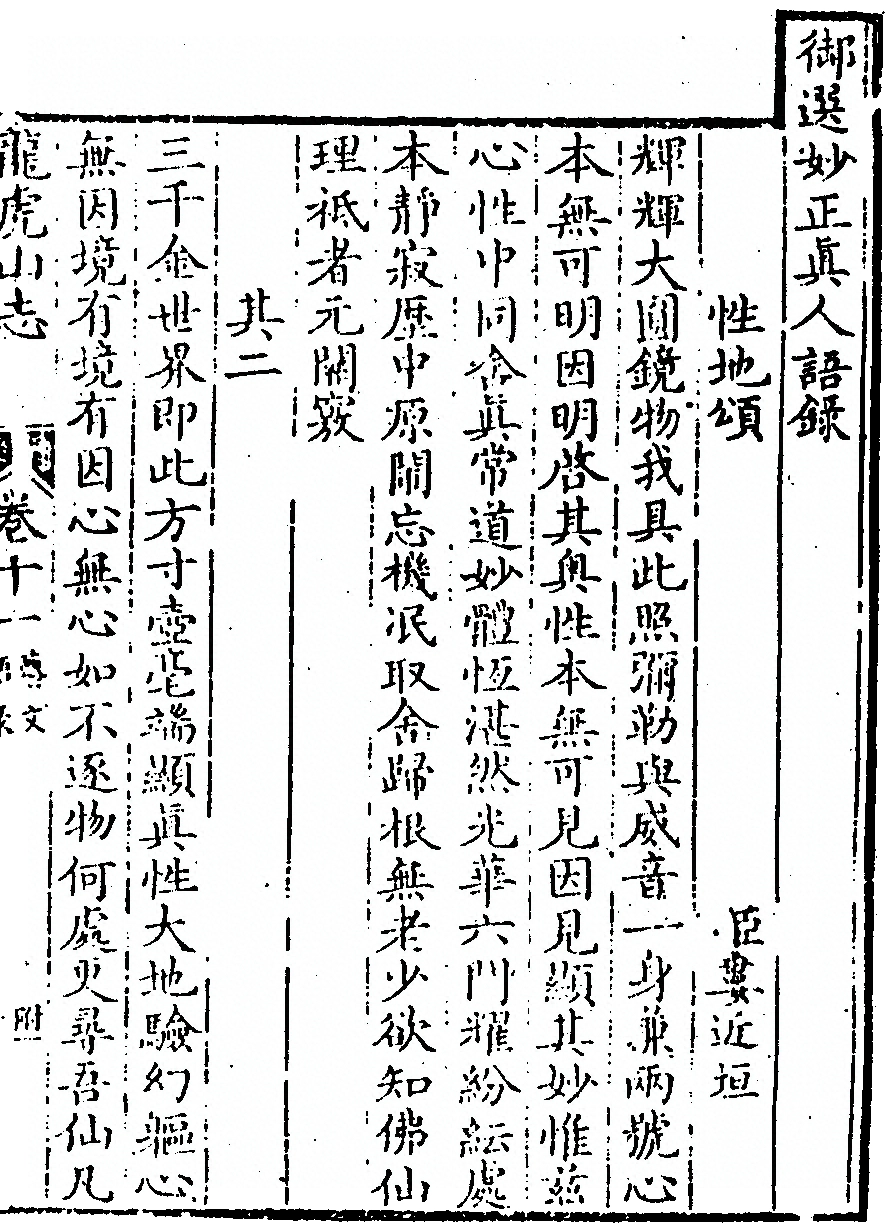 御選妙正眞人語錄
性地頌　臣婁近垣
輝輝大圓鏡物我具此照彌勒與威音一身兼兩號心
本無可明因明啓其奧性本無可見因見顯其妙惟兹
心性中同含眞常道妙體恆湛然光華六門耀紛紜處
本靜寂歷中原鬧忘機泯取舍歸根無老少欲知佛仙
理祗者元關竅
其二
三千金世界即此方寸壺毫端顯眞性大地驗幻軀心
無因境有境有因心無心如不逐物何處更尋吾仙凡
龍虎山志　卷十一　藝文　附